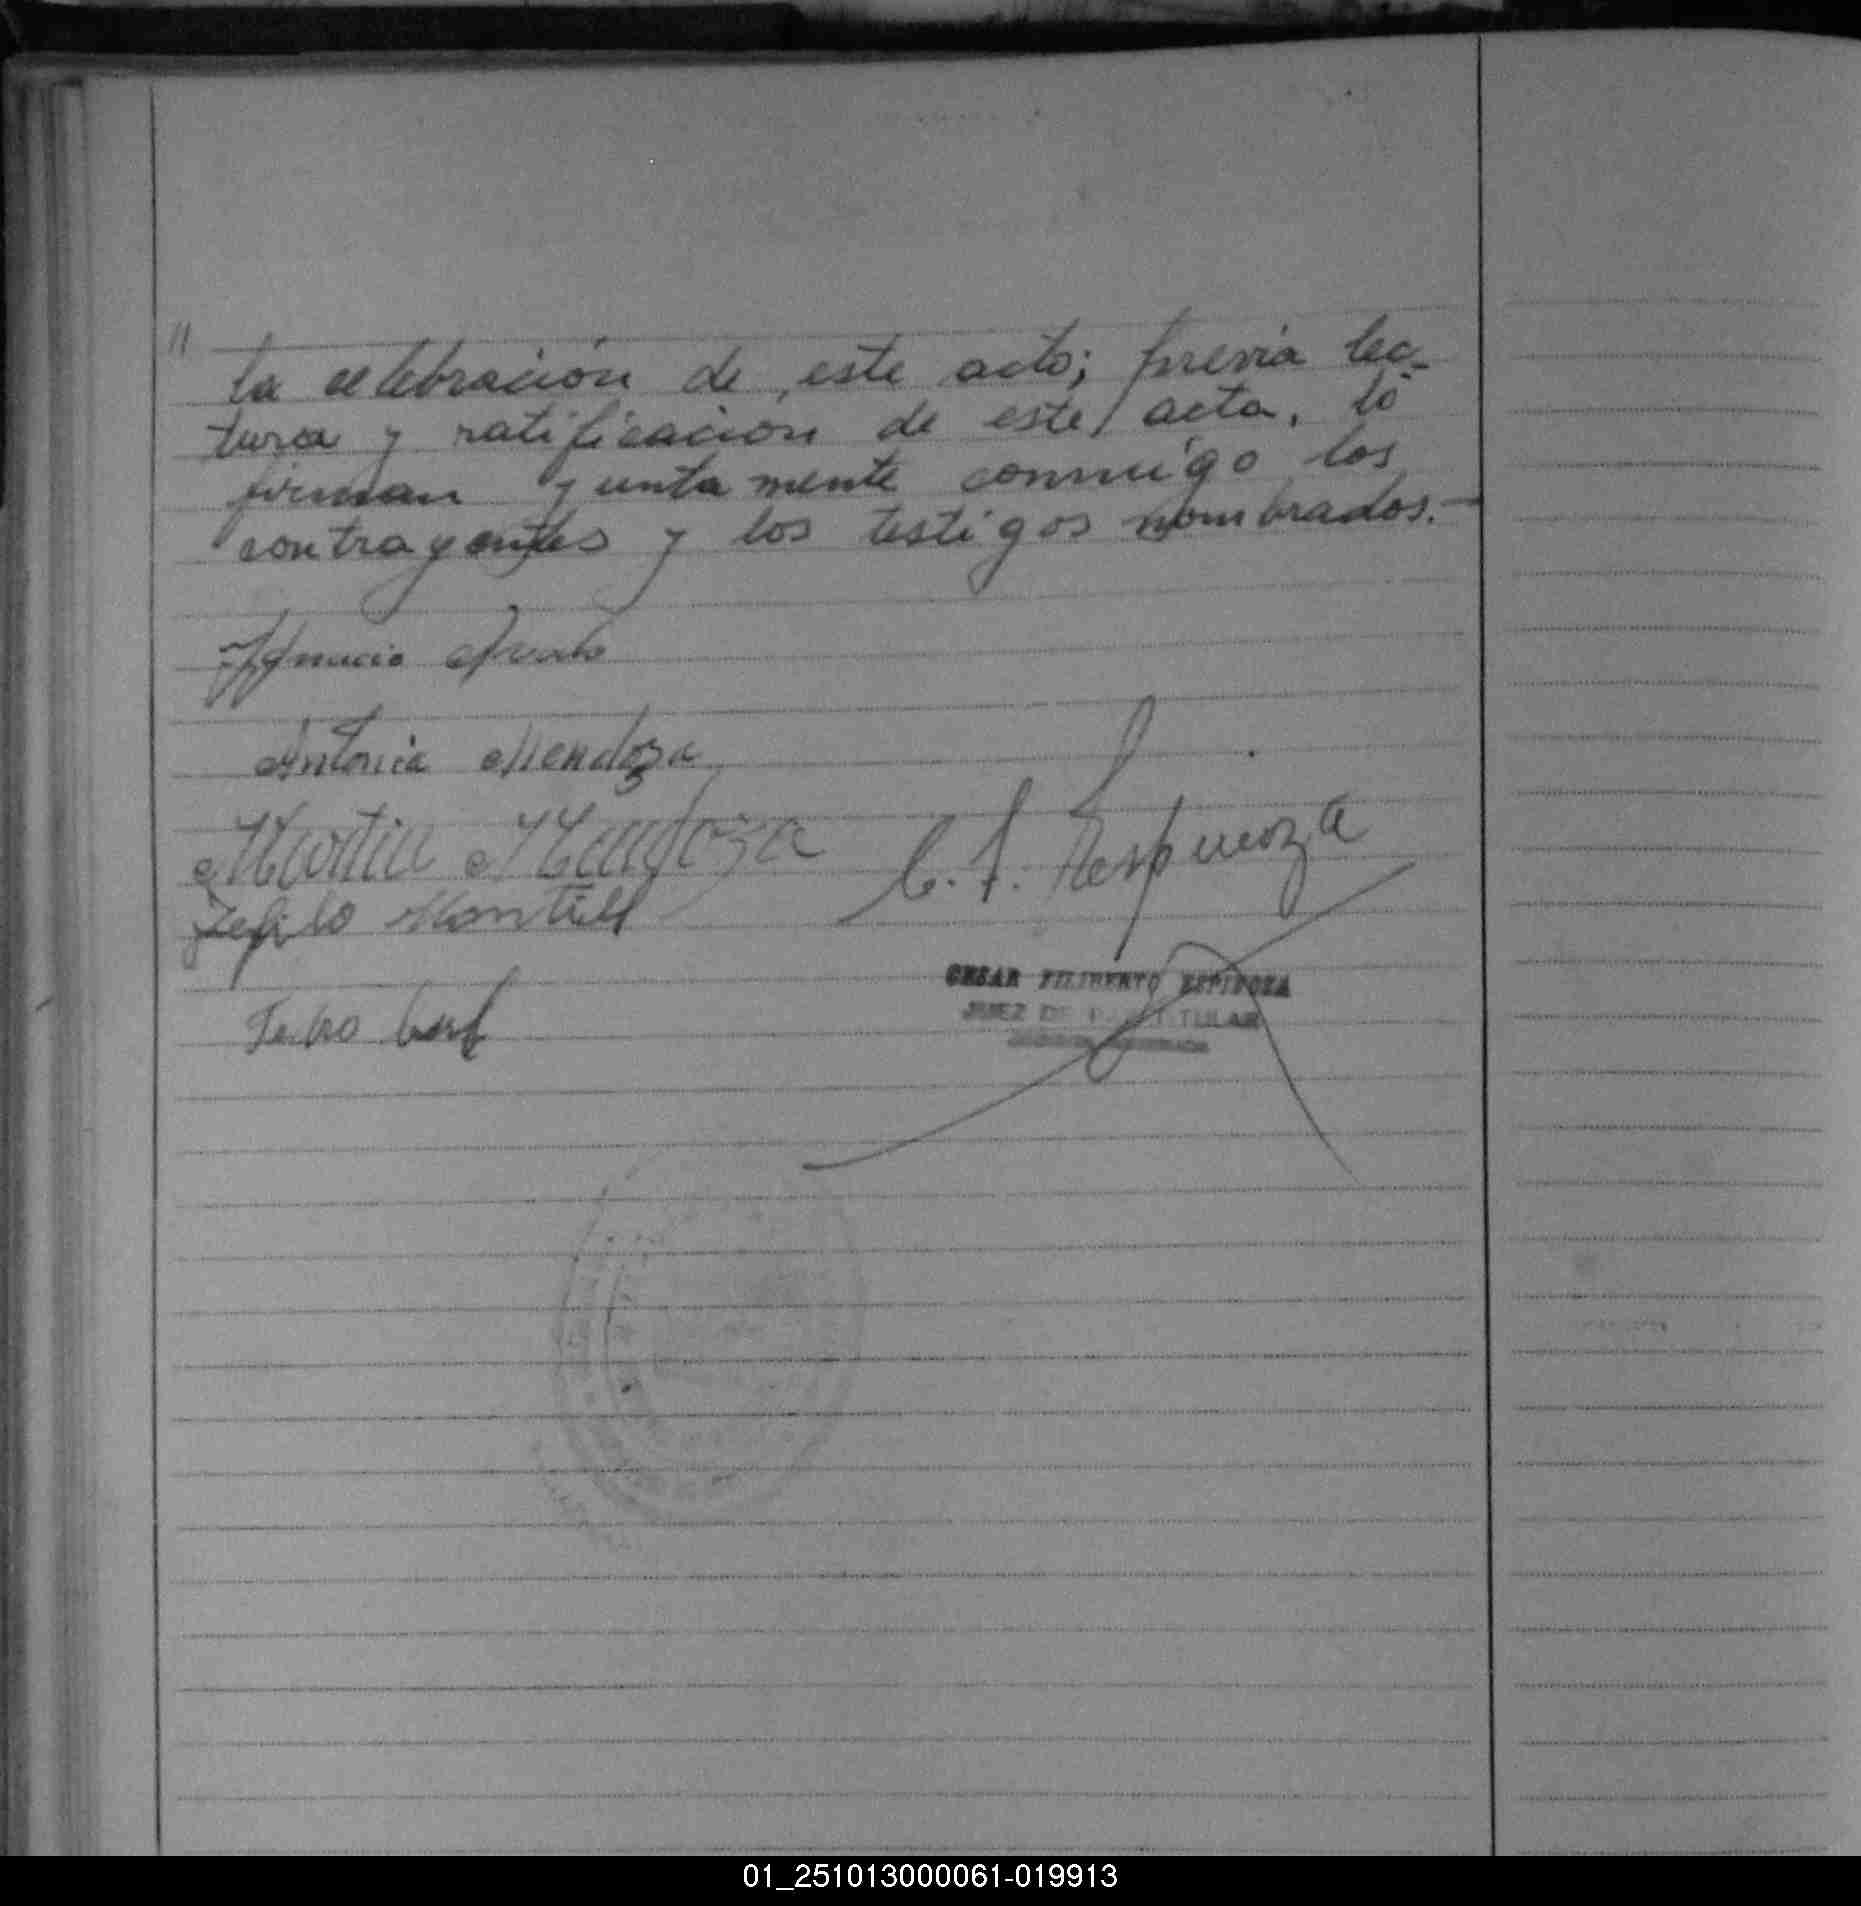 "
la celebración de este acto; previa lec-
tura y ratificacion de este acta, lo
firman juntamente conmigo los
contrayentes y los testigos nombrados.-
Ygnacio
Antonia Mendoza
Martin Mendoza
C. F. Espinoza
Montiel
CESAR FILIBERTO ESPINOZA
JUEZ DE PAZ TITULAR
01_251013000061-019913